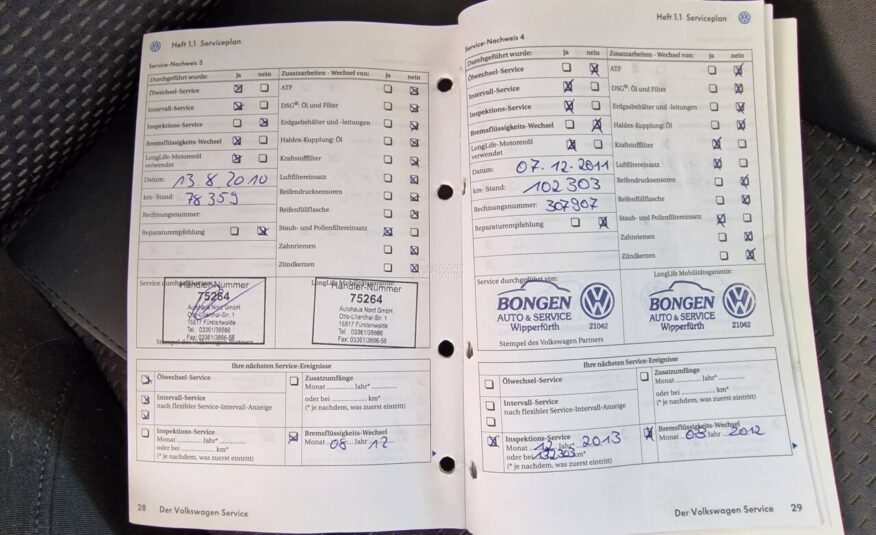 Heft 1.1 Serviceplan
Service-Nachweis 3
Durchgeführt wurde: ja nein
Zusatzarbeiten - Wechsel von: ja nein
Ölwechsel-Service
ATF
Intervall-Service
DSG®: Öl und Filter
Inspektions-Service
Erdgasbehälter und -leitungen
Bremsflüssigkeits-Wechsel
Haldex-Kupplung: Öl
LongLife-Motorenöl
verwendet
Kraftstofffilter
Datum: 13.8.2010
Luftfiltereinsatz
km-Stand: 78359
Reifendrucksensoren
Rechnungsnummer:
Reifenfüllflasche
Reparaturempfehlung
Staub- und Pollenfiltereinsatz
Zahnriemen
Zündkerzen
Service durchgeführt von:
LongLife Mobilitätsgarantie:
Händler-Nummer
75264
Autohaus Nord GmbH
Otto-Lilienthal-Str. 1
15517 Fürstenwalde
Tel. 03361/36666
Fax: 03361/36
Stempel des Volkswagen Partners
Händler-Nummer
75264
Autohaus Nord GmbH
Otto-Lilienthal-Str. 1
15517 Fürstenwalde
Tel. 03361/36666
Fax: 03361/36
Ihre nächsten Service-Ereignisse
Ölwechsel-Service
Zusatzumfänge
Monat ............ Jahr* ............
oder bei ............ km*
(* je nachdem, was zuerst eintritt)
Intervall-Service
nach flexibler Service-Intervall-Anzeige
Inspektions-Service
Monat ............ Jahr* ............
oder bei ............ km*
(* je nachdem, was zuerst eintritt)
Bremsflüssigkeits-Wechsel
Monat 08 Jahr 12
28 Der Volkswagen Service
Heft 1.1 Serviceplan
Service-Nachweis 4
Durchgeführt wurde: ja nein
Zusatzarbeiten - Wechsel von: ja nein
Ölwechsel-Service
ATF
Intervall-Service
DSG®: Öl und Filter
Inspektions-Service
Erdgasbehälter und -leitungen
Bremsflüssigkeits-Wechsel
Haldex-Kupplung: Öl
LongLife-Motorenöl
verwendet
Kraftstofffilter
Datum: 07.12.2011
Luftfiltereinsatz
km-Stand: 102303
Reifendrucksensoren
Rechnungsnummer: 307907
Reifenfüllflasche
Reparaturempfehlung
Staub- und Pollenfiltereinsatz
Zahnriemen
Zündkerzen
Service durchgeführt von:
LongLife Mobilitätsgarantie:
BONGEN
AUTO & SERVICE
Wipperfürth
21042
Stempel des Volkswagen Partners
BONGEN
AUTO & SERVICE
Wipperfürth
21042
Ihre nächsten Service-Ereignisse
Ölwechsel-Service
Zusatzumfänge
Monat ............ Jahr* ............
oder bei ............ km*
(* je nachdem, was zuerst eintritt)
Intervall-Service
nach flexibler Service-Intervall-Anzeige
Inspektions-Service
Monat 12 Jahr* 2013
oder bei 132303 km*
(* je nachdem, was zuerst eintritt)
Bremsflüssigkeits-Wechsel
Monat 08 Jahr 2012
Der Volkswagen Service 29